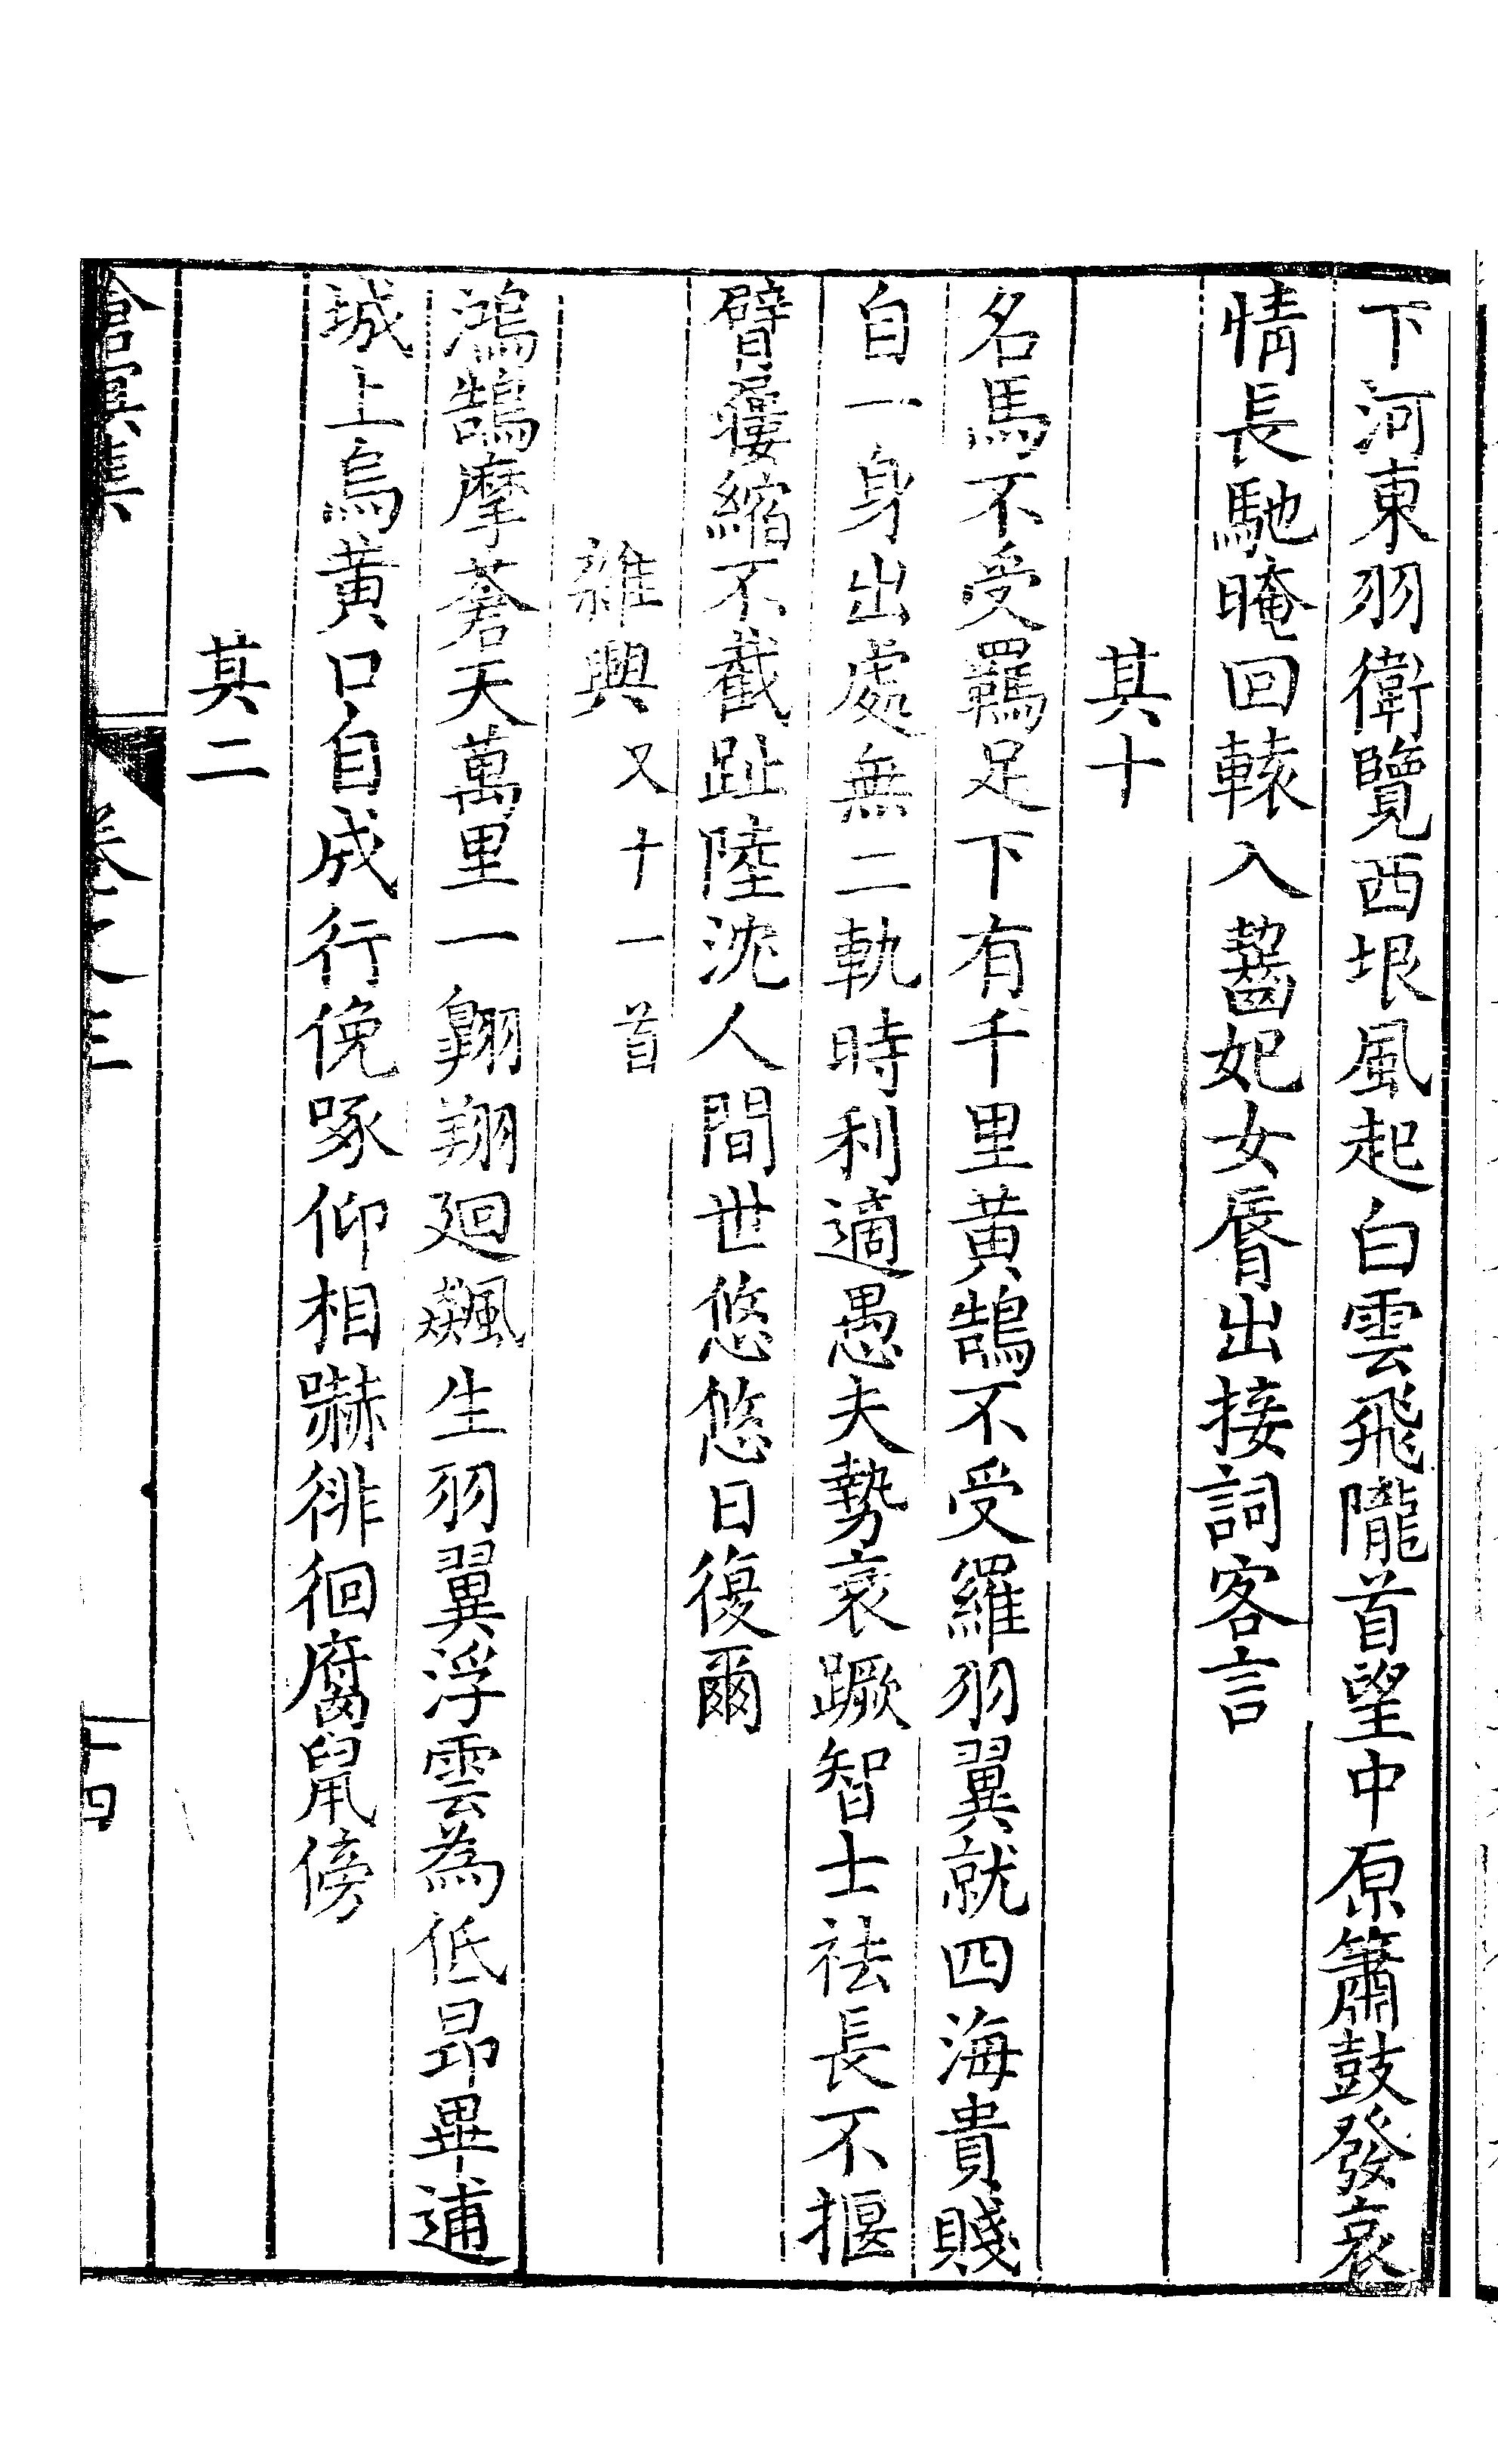 下河東羽衛覽西垠風起白雲飛隴首望中原簫鼓發哀
情長馳晻回轅入齧妃女脣出接詞客言
其十
名馬不受羈足下有千里黃鵠不受羅羽翼就四海貴賤
自一身出處無二軌時利適愚夫勢衰蹶智士袪長不揠
臂蔞縮不截趾陸沈人間世悠悠日復爾
雜興又十一首
鴻鵠摩蒼天萬里一翺翔廻飊生羽翼浮雲為低昂畢逋
城上烏黃口自成行俛啄仰相嚇徘徊腐鼠傍
其二
滄溟集 卷之三 十四